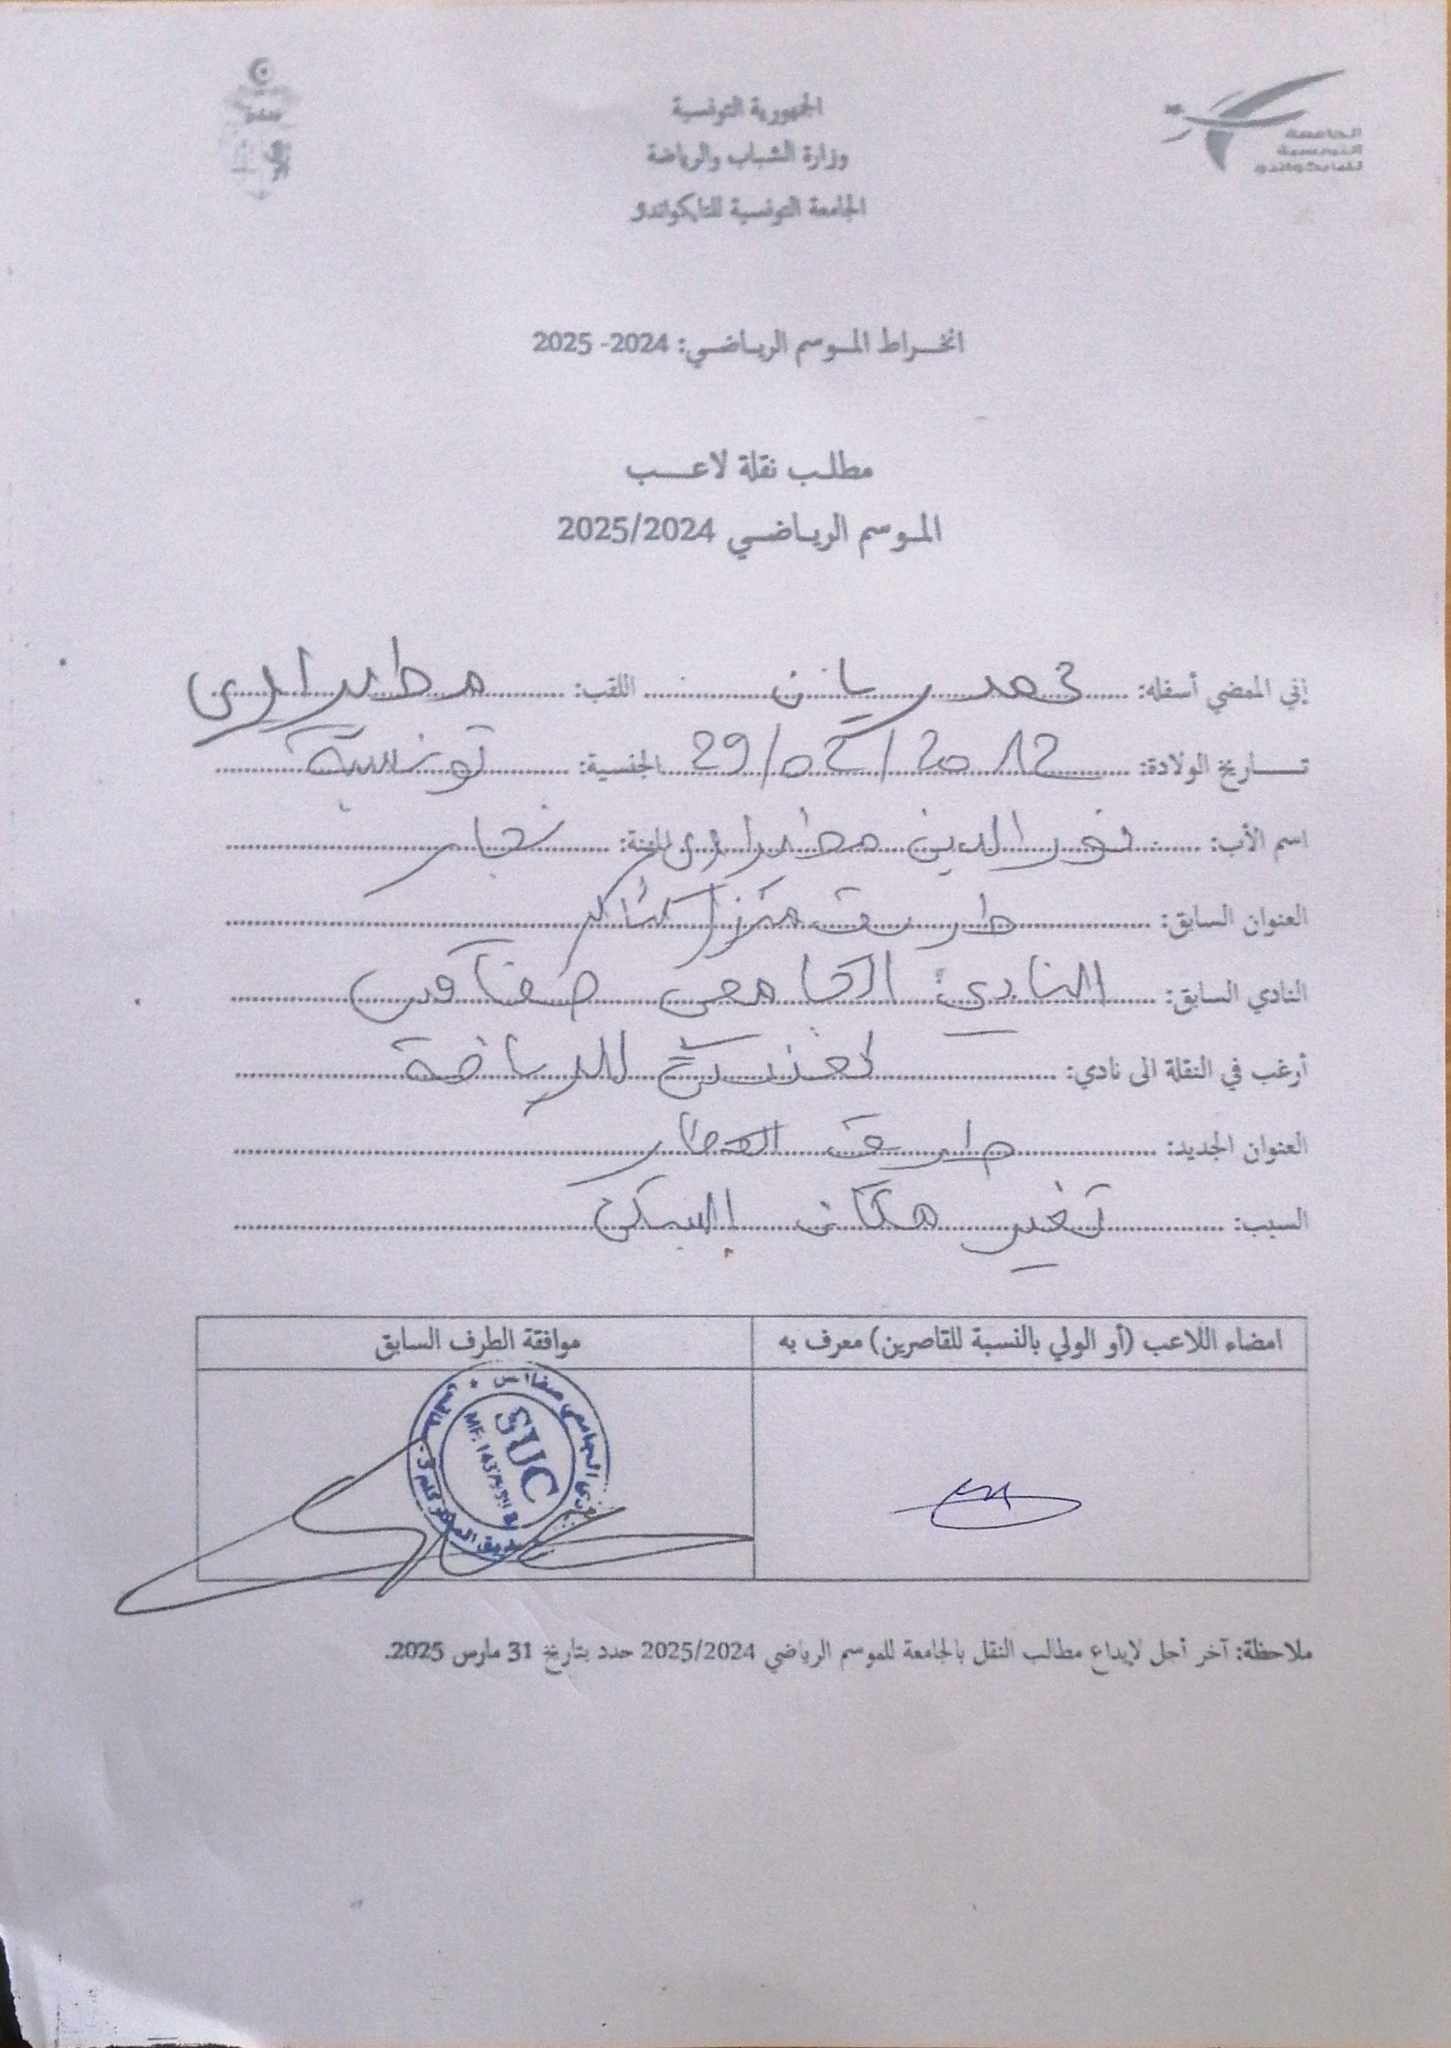 الجمهورية التونسية
وزارة الشباب والرياضة
الجامعة التونسية للتايكواندو
الجامعة
التونسية
للتايكواندو
انخراط الموسم الرياضي: 2024- 2025
مطلب نقلة لاعب
الموسم الرياضي 2025/2024
إني الممضي أسفله: محمد ريان اللقب:
تاريخ الولادة: 29/02/2012 الجنسية: تونسية
اسم الأب: نور الدين المهنة: نجار
العنوان السابق: طريق منزل شاكر
النادي السابق: النادي الجامعي صفاقس
أرغب في النقلة الى نادي: للرياضة
العنوان الجديد: طريق
السبب: تغير مكان السكن
امضاء اللاعب (أو الولي بالنسبة للقاصرين) معرف به
موافقة الطرف السابق
SUC
ملاحظة: آخر أجل لإيداع مطالب النقل بالجامعة للموسم الرياضي 2025/2024 حدد بتاريخ 31 مارس 2025.